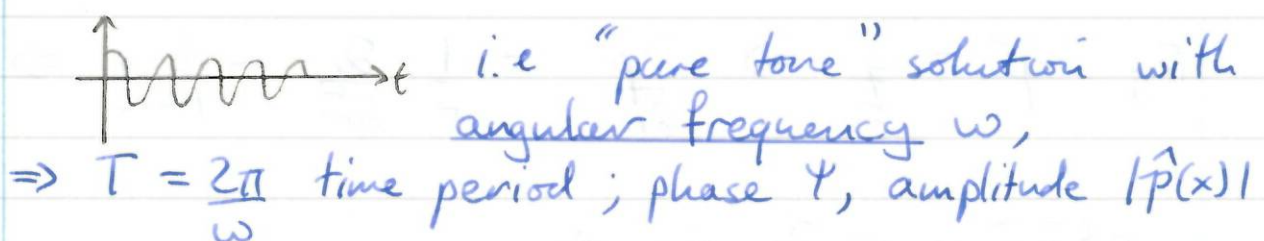 t i.e "pure tone" solution with
angular frequency ω,
⇒ T = 2π/ω time period ; phase Ψ, amplitude |p̂(x)|